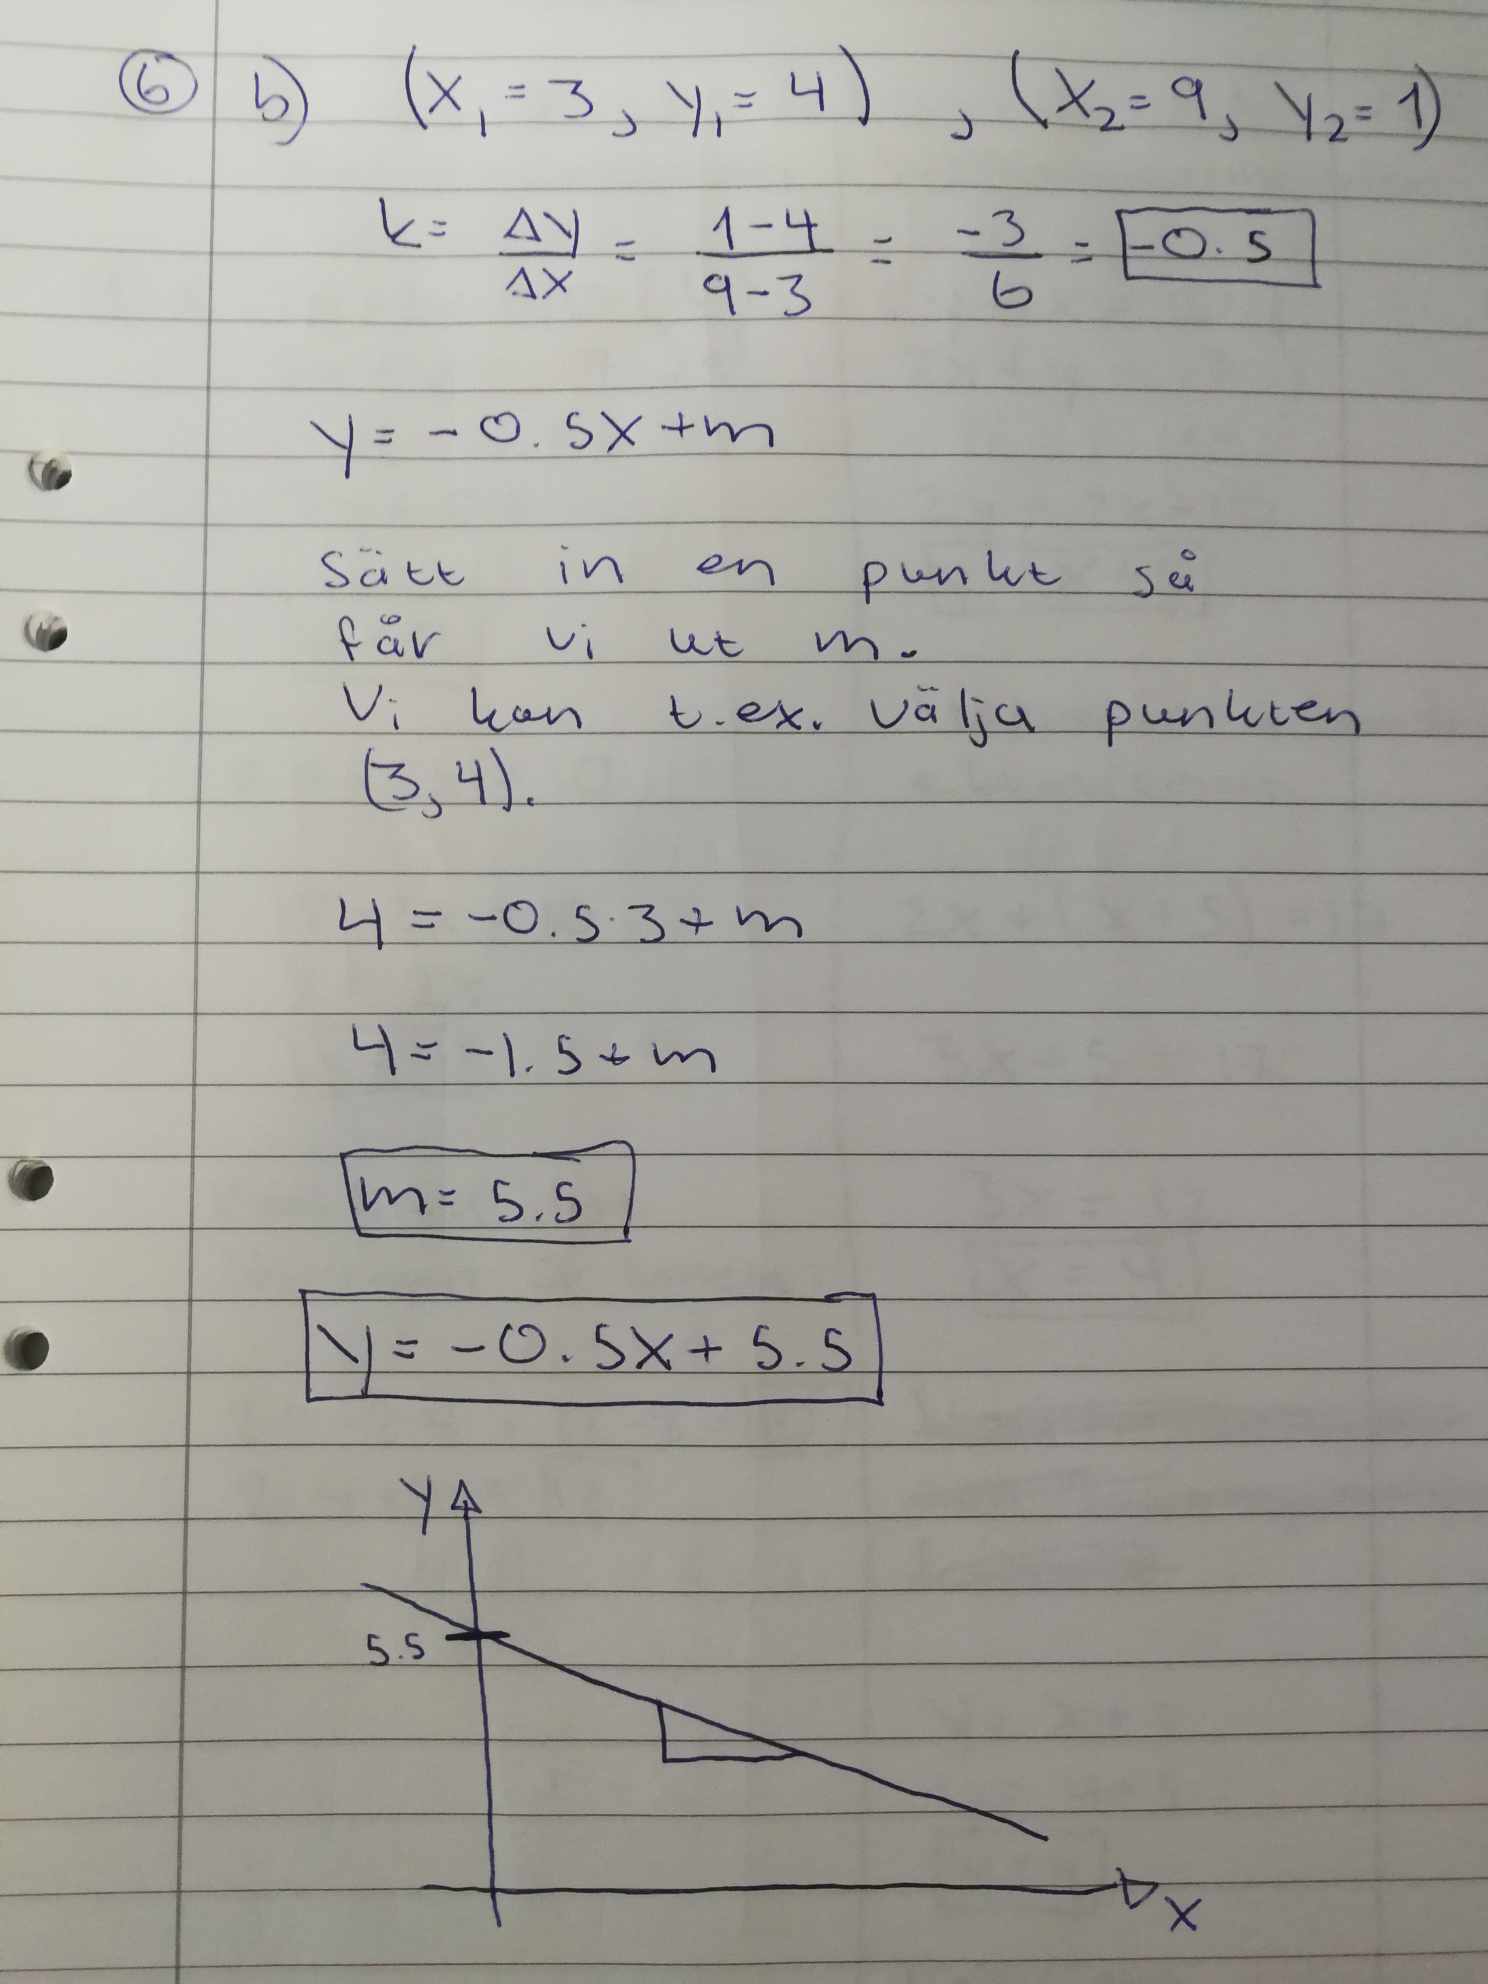 6 b) (x₁ = 3, y₁ = 4), (x₂ = 9, y₂ = 1)
k = Δy/Δx = (1-4)/(9-3) = -3/6 = -0.5
y = -0.5x + m
Sätt in en punkt så
får vi ut m.
Vi kan t.ex. välja punkten
(3,4).
4 = -0.5·3 + m
4 = -1.5 + m
m = 5.5
y = -0.5x + 5.5
y
5.5
x